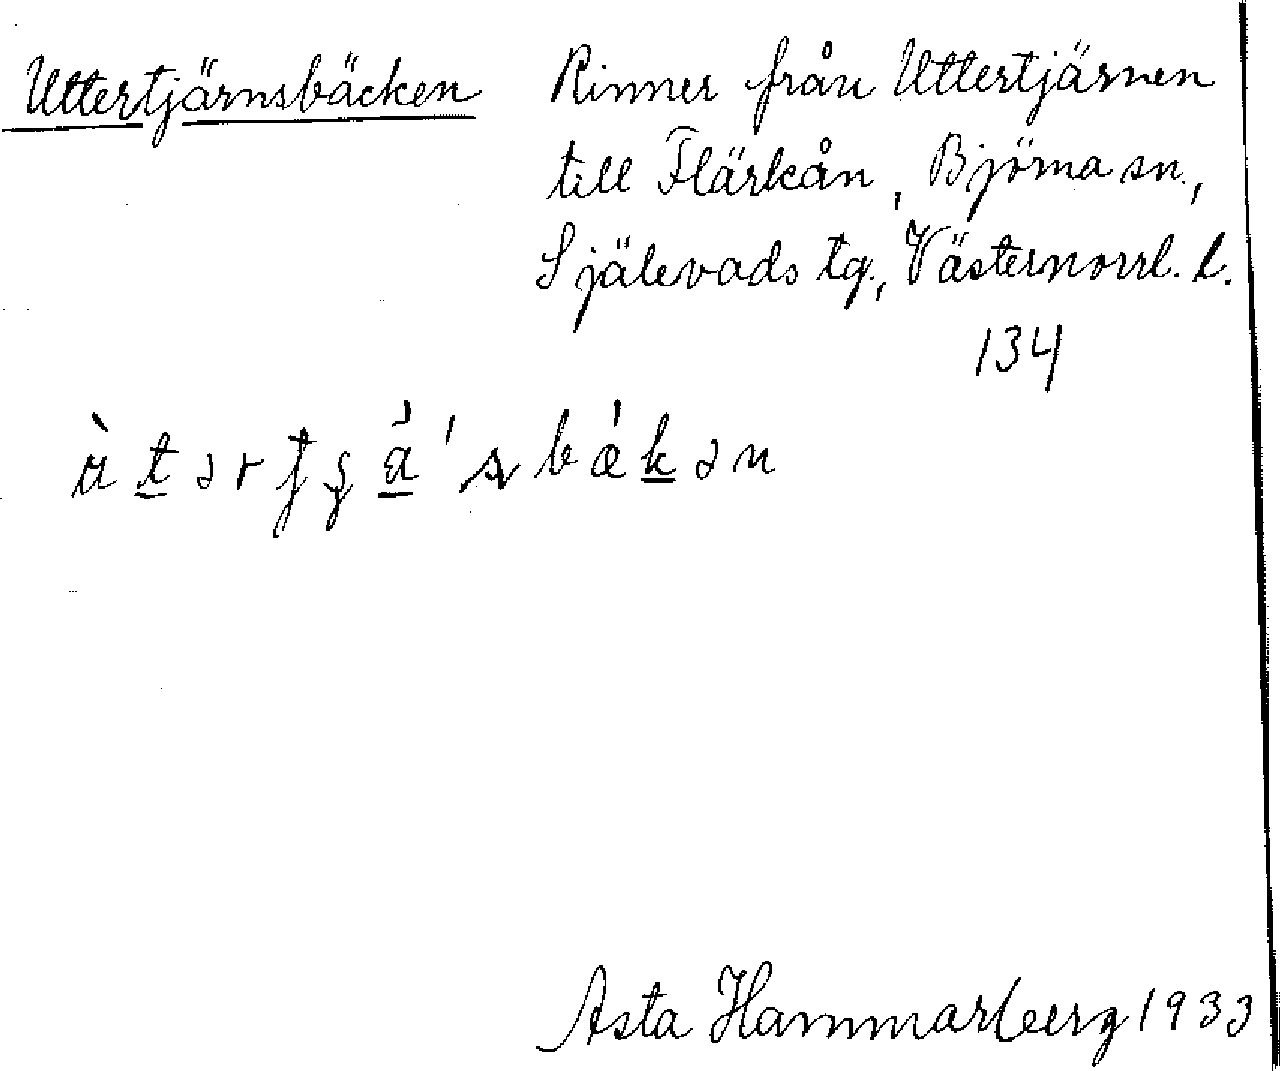 Uttertjärnsbäcken
Rinner från Uttertjärnen
till Flärkån, Björna sn.,
Själevads tg., Västernorrl. l.
134
Asta Hammarberg 1933